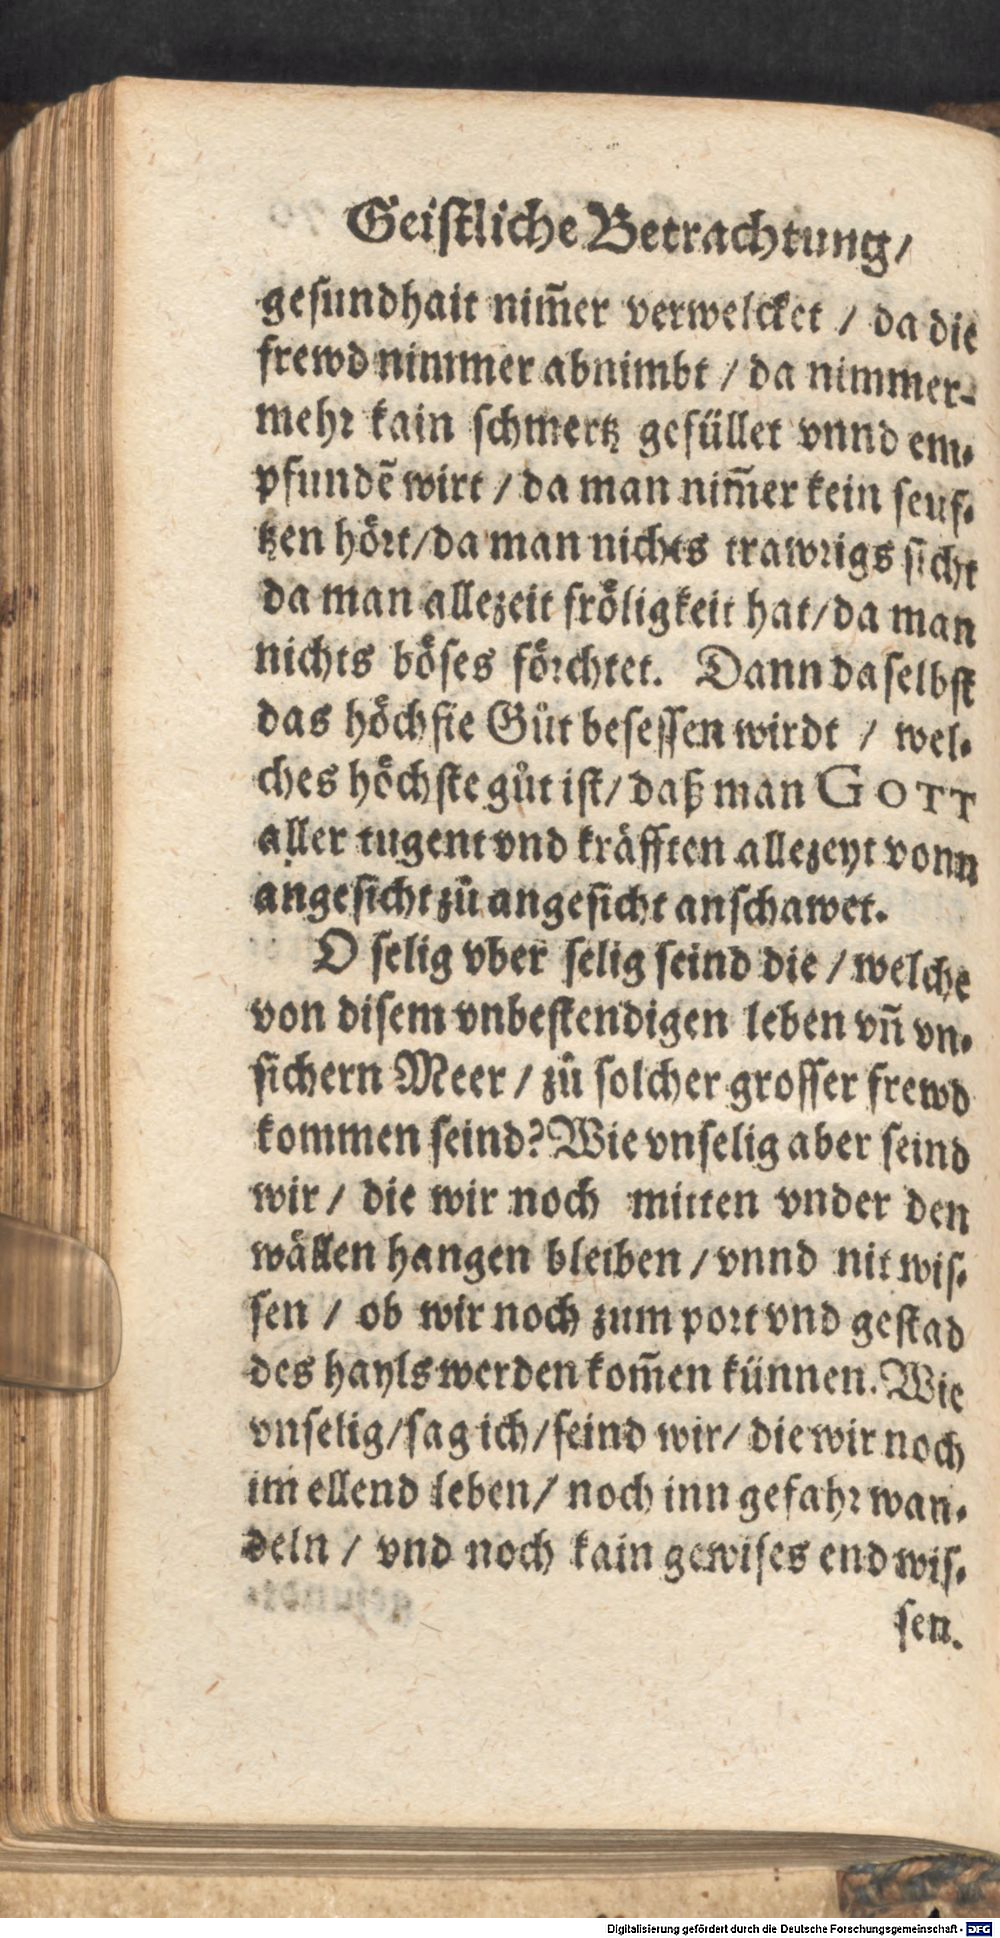 Geistliche Betrachtung/
gesundhait nim̃er verwelcket / da die
frewd nimmer abnimbt / da nimmer-
mehr kain schmertz gefüllet vnnd em-
pfundẽ wirt / da man nim̃er kein seuf-
tzen hört/da man nichts trawrigs sicht
da man allezeit fröligkeit hat/da man
nichts böses förchtet. Dann daselbst
das höchste Gůt besessen wirdt / wel-
ches höchste gůt ist/ daß man GOTT
aller tugent vnd kräfften allezeyt vonn
angesicht zů angesicht anschawet.
O selig vber selig seind die / welche
von disem vnbestendigen leben vñ vn-
sichern Meer / zů solcher grosser frewd
kommen seind? Wie vnselig aber seind
wir / die wir noch mitten vnder den
wällen hangen bleiben / vnnd nit wis-
sen / ob wir noch zum port vnd gestad
des hayls werden kom̃en künnen. Wie
vnselig/sag ich/seind wir/ die wir noch
im ellend leben/ noch inn gefahr wan-
deln / vnd noch kain gewises end wis-
sen.
Digitalisierung gefördert durch die Deutsche Forschungsgemeinschaft - DFG